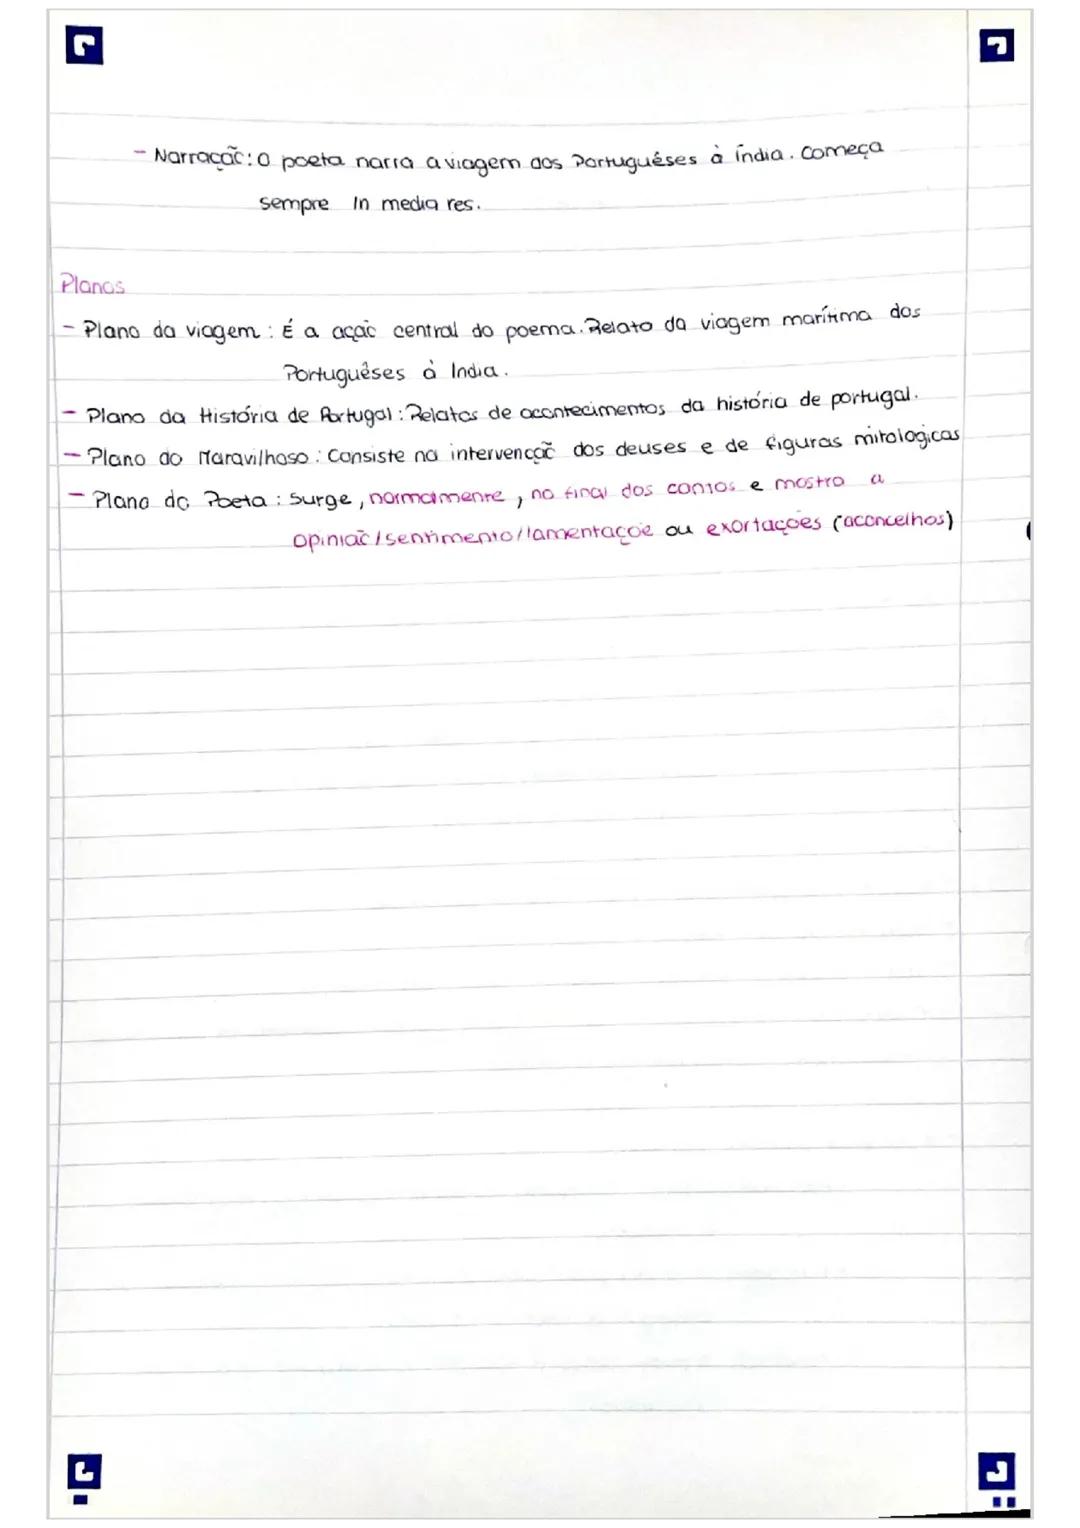 - Narração: O poeta narra a viagem dos Portuguêses à índia. Começa
sempre In media res.
Planos
- Plano da viagem : É a ação central do poema. Relato da viagem marítima dos
Portuguêses à India.
- Plano da História de Portugal : Relatos de acontecimentos da história de portugal.
- Plano do Maravilhoso : Consiste na intervenção dos deuses e de figuras mitologicas
- Plano do Poeta : Surge, normalmente, no final dos cantos e mostra a
opinião / sentimento / lamentaçõe ou exortações (aconcelhos)